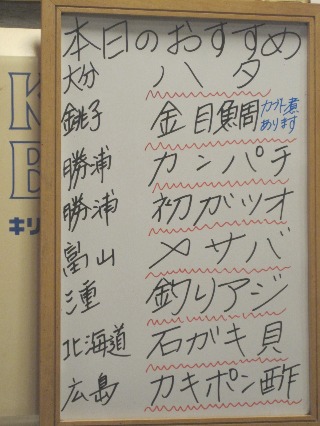 本日のおすすめ
大分 ハタ
銚子 金目鯛 カブト煮あります
勝浦 カンパチ
勝浦 初ガツオ
富山 〆サバ
三重 釣りアジ
北海道 石ガキ貝
広島 カキポン酢
キリ